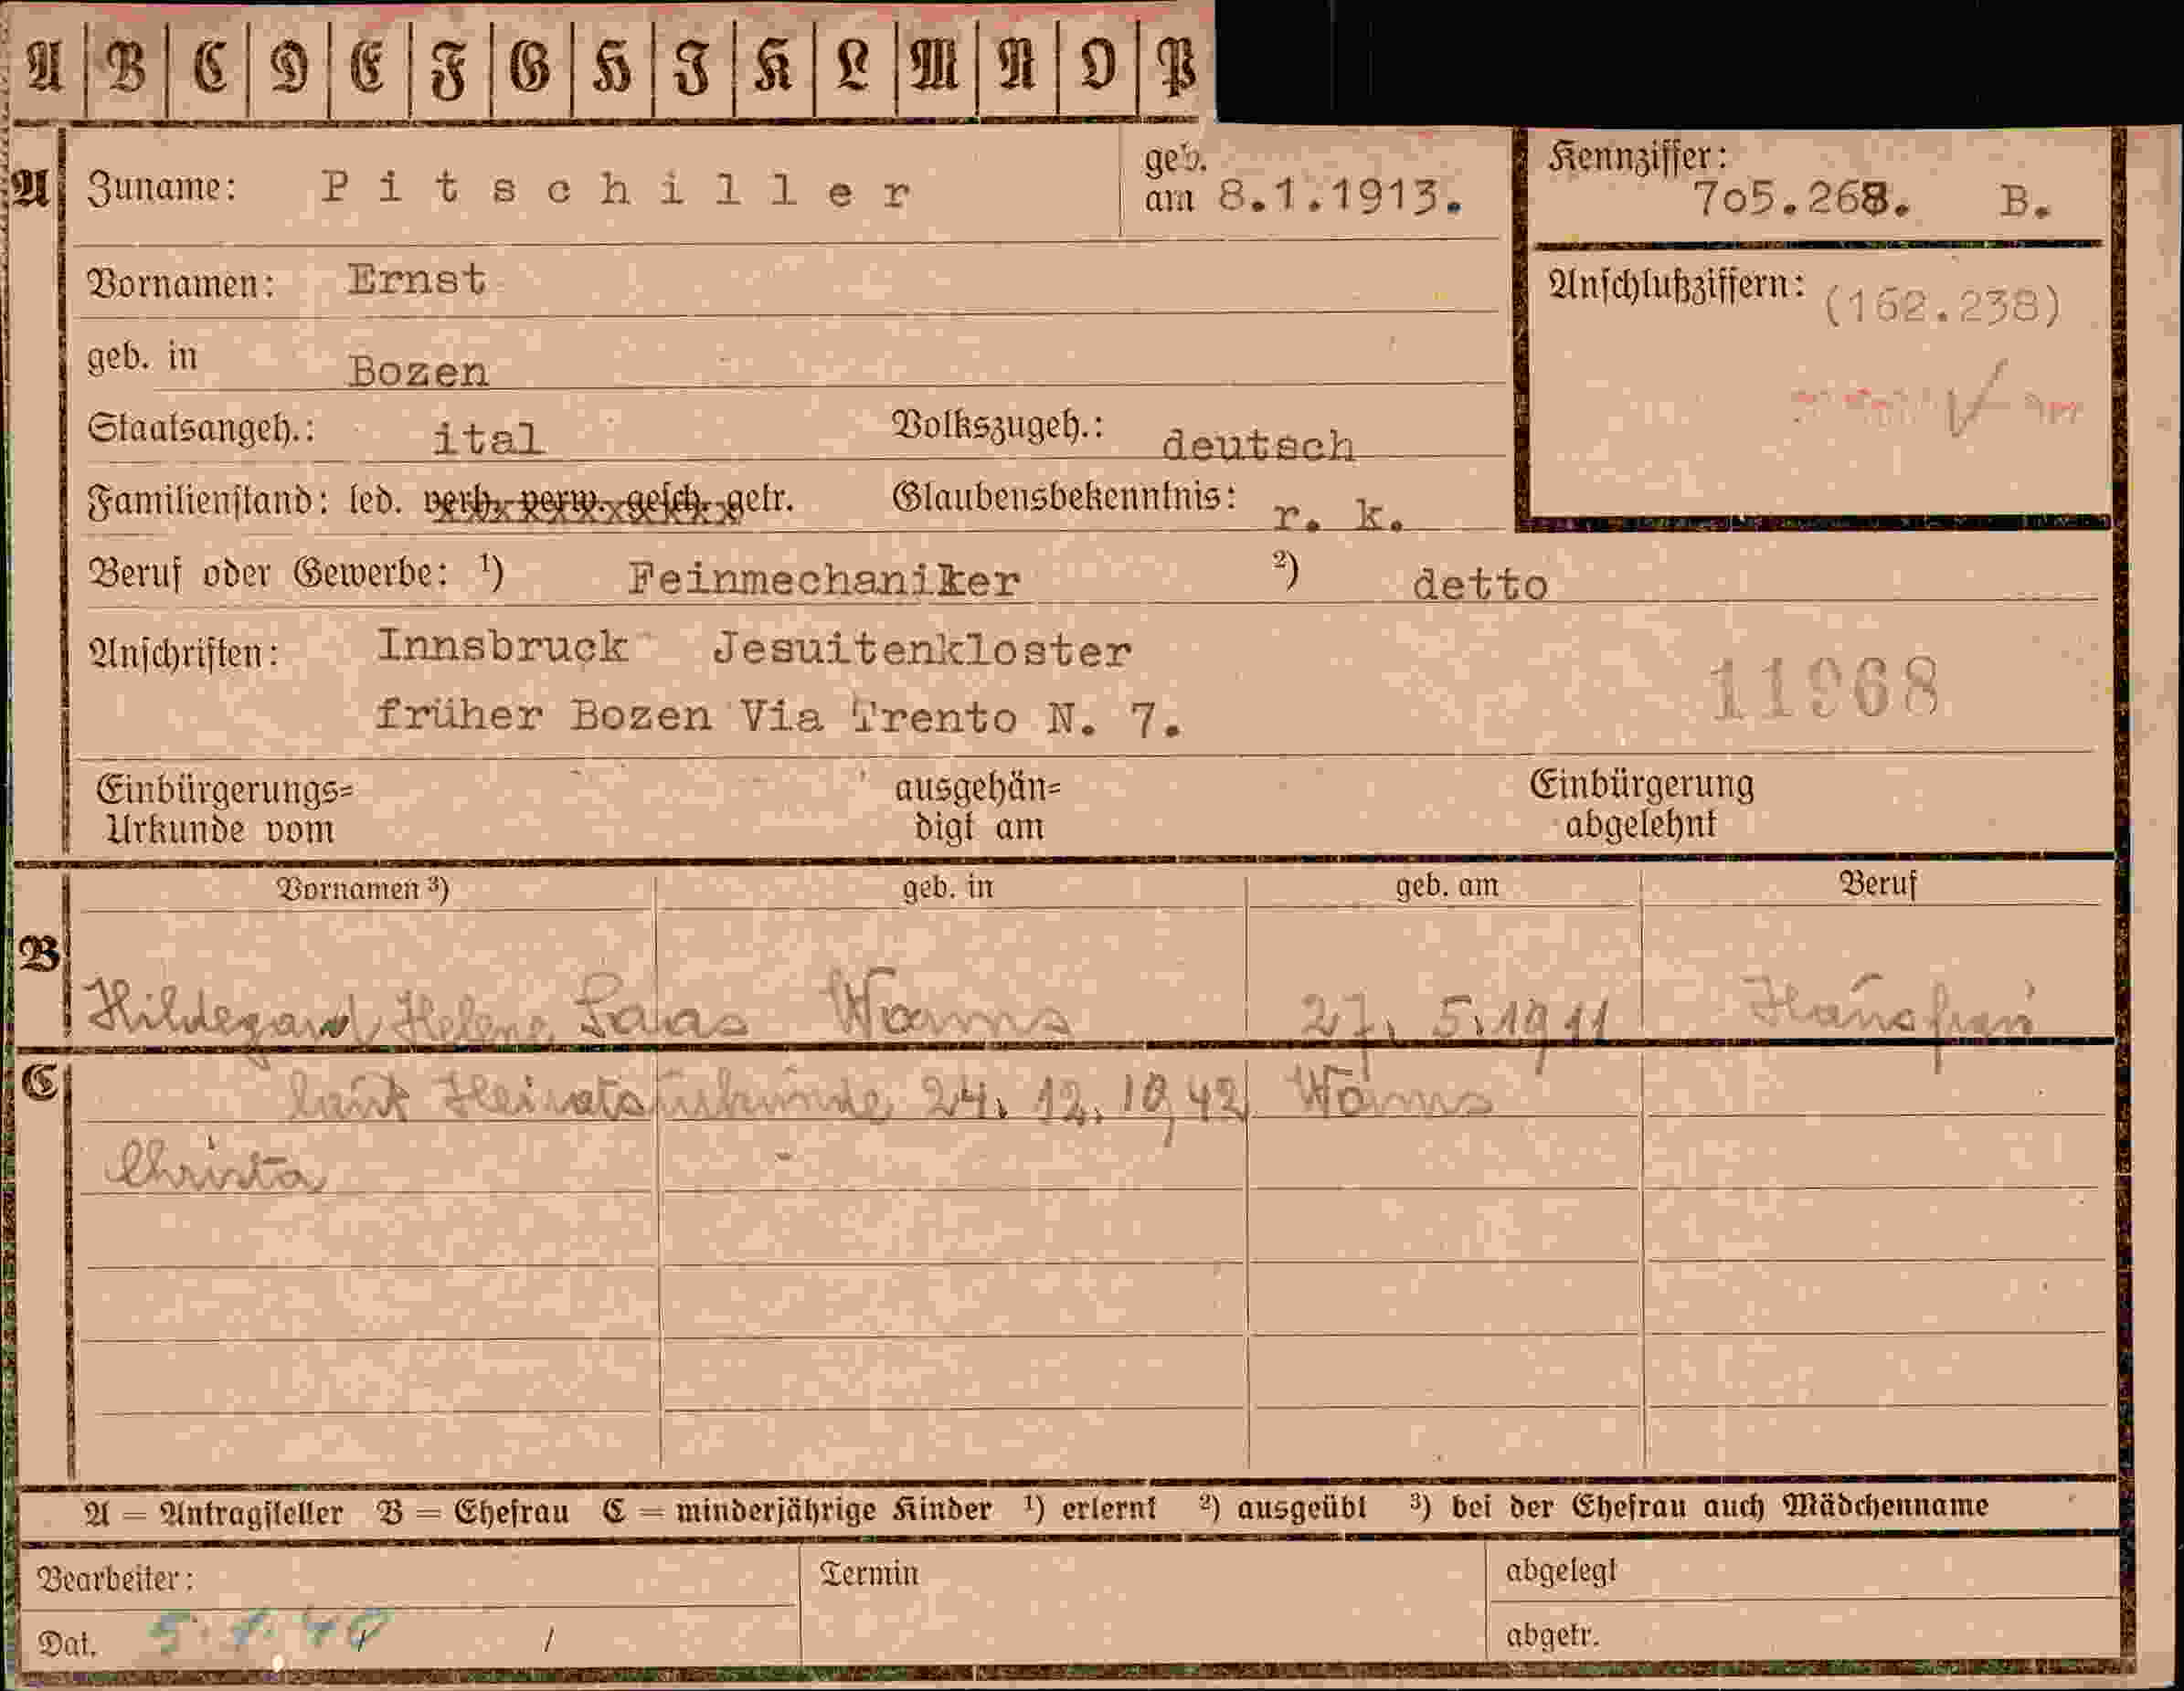 A B C D E F G H I K L M N O P
A Zuname: Pitschiller geb. am 8.1.1913. Kennziffer: 7o5.268. B.
Vornamen: Ernst Anschlußziffern: (162.238)
geb. in Bozen
Staatsangeh.: ital Volkszugeh.: deutsch
Familienstand: led. verh. verw. gesch. getr. Glaubensbekenntnis: r. k.
Beruf oder Gewerbe: ¹) Feinmechaniker ²) detto
Anschriften: Innsbruck Jesuitenkloster
früher Bozen Via Trento N. 7. 11968
Einbürgerungs= ausgehän= Einbürgerung
Urkunde vom digt am abgelehnt
Vornamen ³) geb. in geb. am Beruf
B
Hildegard Helene Saas Worms 27. 5. 1911 Hausfrau
C laut Heiratsurkunde 24. 12. 1942 Worms
Christa
A = Antragsteller B = Ehefrau C = minderjährige Kinder ¹) erlernt ²) ausgeübt ³) bei der Ehefrau auch Mädchenname
Bearbeiter: Termin abgelegt
Dat. abgetr.